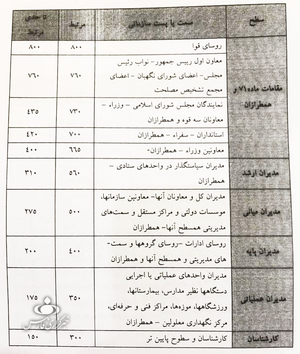 سطح
سمت یا پست سازمانی
مرتبط
تا حدی مرتبط
مقامات ماده ۷۱ و همطرازان
روسای قوا
۸۰۰
۸۰۰
معاون اول رییس جمهور- نواب رئیس
مجلس- اعضای شورای نگهبان - اعضای
مجمع تشخیص مصلحت
۷۶۰
۷۶۰
نمایندگان مجلس شورای اسلامی - وزراء -
معاونان سه قوه و همطرازان
۷۳۰
۴۳۵
استانداران - سفراء - همطرازان
۷۰۰
۴۲۰
معاونین وزراء - همطرازان-
۶۶۵
۴۰۰
مدیران ارشد
مدیران سیاستگذار در واحدهای ستادی -
همطرازان
۵۶۰
۳۱۰
مدیران میانی
مدیران کل و معاونان آنها- معاونین سازمانها،
موسسات دولتی و مراکز مستقل و سمت‌های
مدیریتی همسطح آنها- همطرازان
۵۰۰
۲۷۵
مدیران پایه
روسای ادارات -روسای گروهها و سمت-
های مدیریتی و همسطح آنها و همطرازان
۴۰۰
۲۰۰
مدیران عملیاتی
مدیران واحدهای عملیاتی یا اجرایی
دستگاهها نظیر مدارس، بیمارستانها،
ورزشگاهها، موزه‌ها، مراکز فنی و حرفه‌ای،
مرکز نگهداری معلولین - همطرازان
۳۵۰
۱۷۵
کارشناسان
کارشناسان و سطوح پایین تر
۳۰۰
۱۵۰